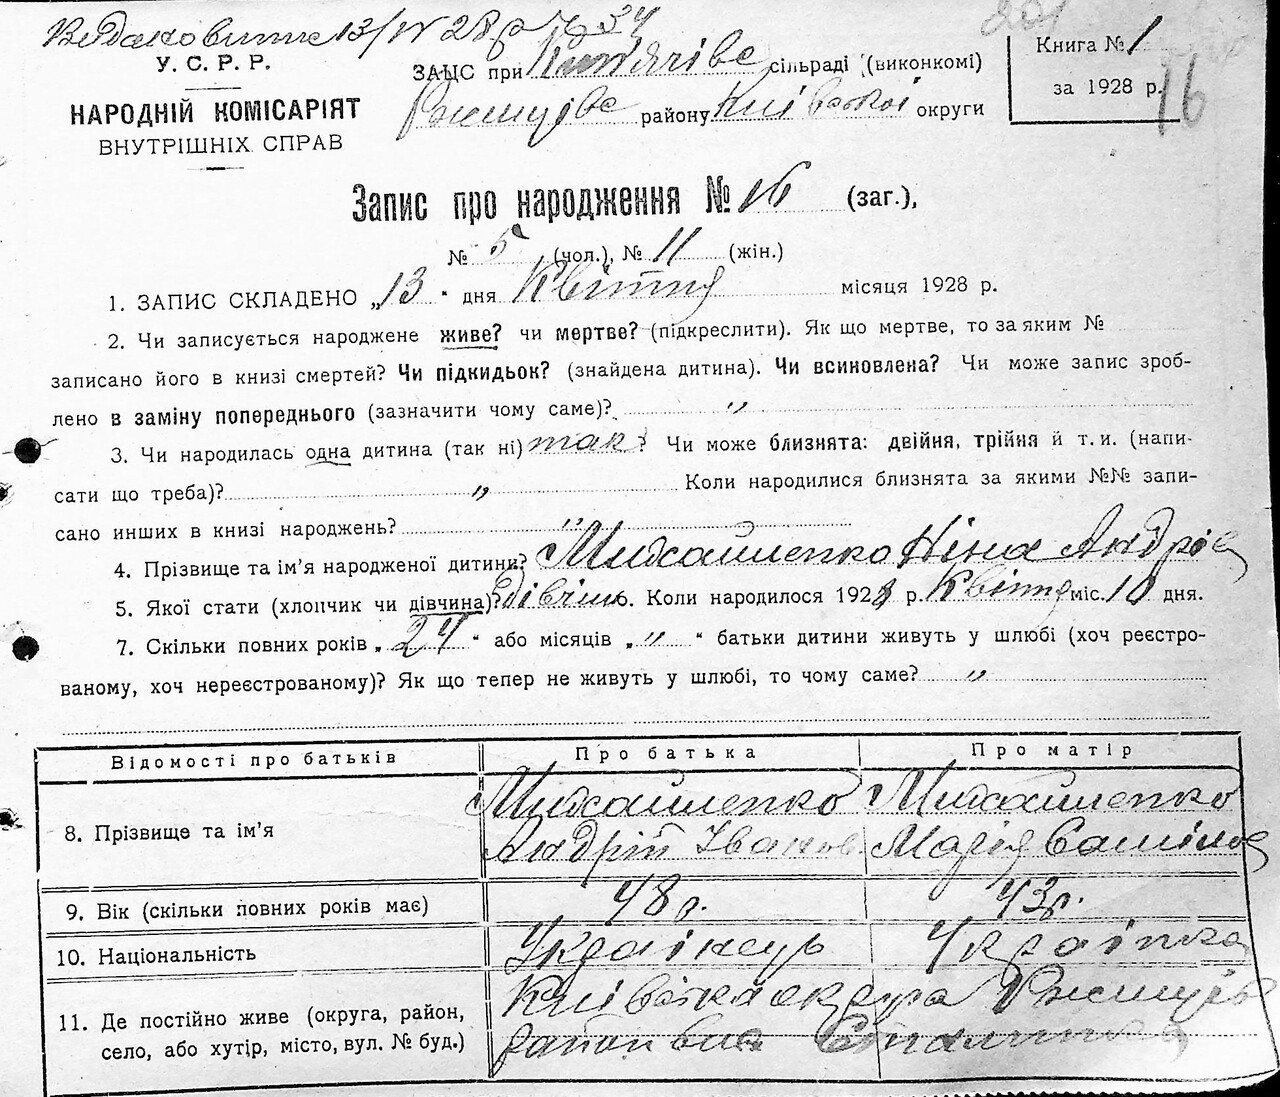 13/IV 28 р № 34
У. С. Р. Р.
НАРОДНІЙ КОМІСАРІЯТ
ВНУТРІШНІХ СПРАВ
ЗАЦС при сільраді (виконкомі)
району Київської округи
Книга № 1
за 1928 р.
16
Запис про народження № 16 (заг.),
№ 5 (чол.), № 11 (жін.)
1. ЗАПИС СКЛАДЕНО „13“ дня Квітня місяця 1928 р.
2. Чи записується народжене живе? чи мертве? (підкреслити). Як що мертве, то за яким №
записано його в книзі смертей? Чи підкидьок? (знайдена дитина). Чи всиновлена? Чи може запис зроб-
лено в заміну попереднього (зазначити чому саме)? „
3. Чи народилась одна дитина (так ні) так? Чи може близнята: двійня, трійня й т. и. (напи-
сати що треба)? „ Коли народилися близнята за якими №№ запи-
сано инших в книзі народжень? „
4. Прізвище та ім'я народженої дитини? Михайленко Ніна Андрів
5. Якої статі (хлопчик чи дівчина)? дівчин 6. Коли народилося 1928 р. Квітня міс. 10 дня.
7. Скільки повних років „24“ або місяців „ „ “ батьки дитини живуть у шлюбі (хоч реєстро-
ваному, хоч нереєстрованому)? Як що тепер не живуть у шлюбі, то чому саме? „
Відомості про батьків Про батька Про матір
8. Прізвище та ім'я Михайленко Андрій Іванов Михайленко Марія
9. Вік (скільки повних років має) 48 р. 43 р.
10. Національність Українець Українка
11. Де постійно живе (округа, район, Київська округа
село, або хутір, місто, вул. № буд.) район